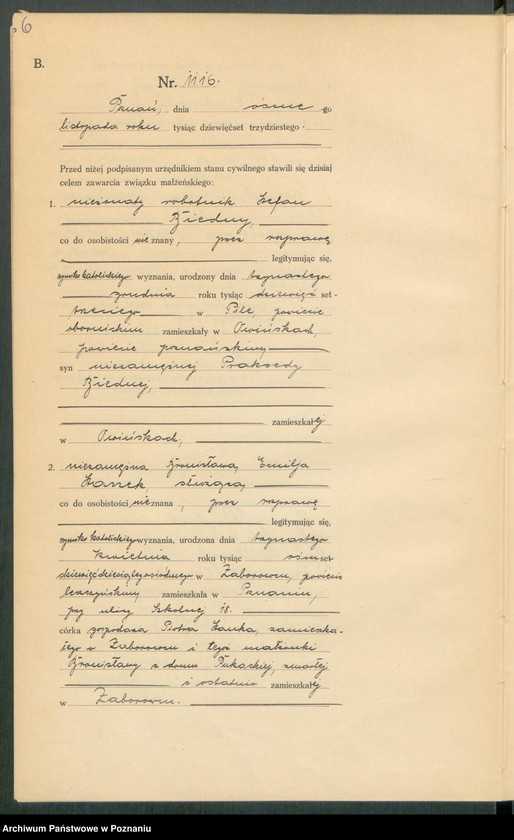 6
B.
Nr. 1116.
Poznań, dnia ósme go
listopada roku tysiąc dziewięćset trzydziestego.
Przed niżej podpisanym urzędnikiem stanu cywilnego stawili się dzisiaj
celem zawarcia związku małżeńskiego:
1. nieżonaty robotnik Stefan
Biedny,
co do osobistości nie znany, przez rozprawę
legitymując się,
rzymsko katolickiego wyznania, urodzony dnia trzynastego
grudnia roku tysiąc dziewięć set-
trzeciego w Pile, powiecie
obornickim zamieszkały w Owińskach,
powiecie poznańskim,
syn niezamężnej Praksedy
Biednej,
zamieszkałej
w Owińskach,
2. niezamężna Bronisława, Emilja
Łanek służąca,
co do osobistości nie znana, przez rozprawę
legitymując się,
rzymsko katolickiego wyznania, urodzona dnia trzynastego
kwietnia roku tysiąc ośmset-
dziewięćdziesiątego siódmego w Zaborowu, powiecie
leszczyńskim, zamieszkała w Poznaniu,
przy ulicy Szkolnej 18.
córka gospodarza Piotra Łanka, zamieszka-
łego w Zaborowu i tegoż małżonki
Bronisławy z domu Pukackiej, zmarłej
i ostatnio zamieszkałej
w Zaborowu.
Archiwum Państwowe w Poznaniu